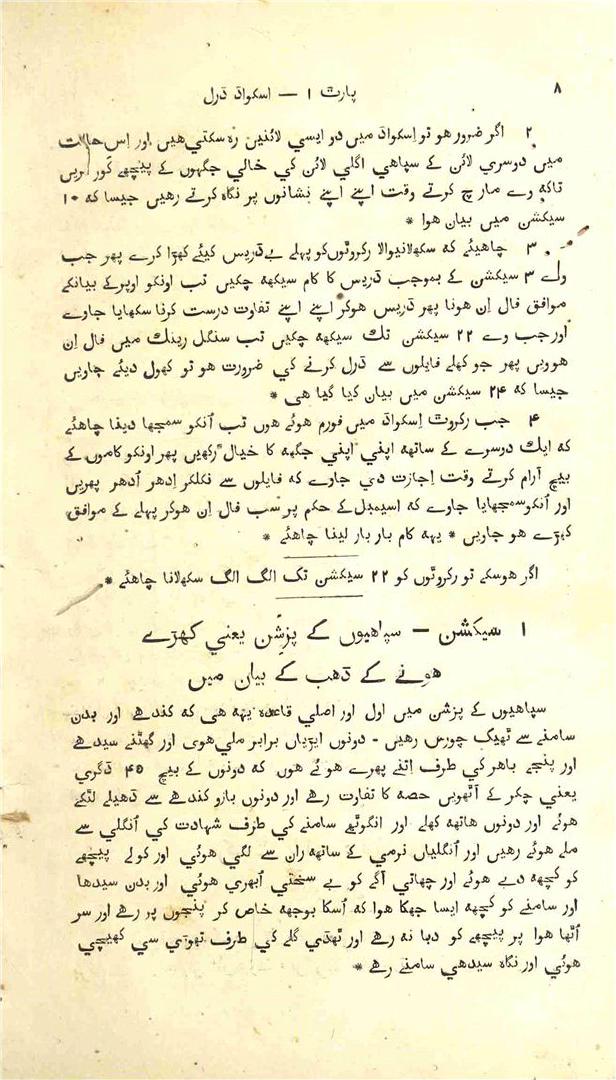 پارٹ ۱ — اسکواڈ ڈرل ۸
۲ اگر ضرور هو تو اِسکواڈ میں دو ایسي لائنیں ره سکتي هیں اور اِس حالت
میں دوسري لائن کے سپاهي اگلي لائن کي خالي جگہوں کے پیچھے کَور کریں
تاکہ وے مارچ کرتے وقت اپنے اپنے نشانوں پر نگاه کرتے رهیں جیسا کہ ۱۰
سیکشن میں بیان هوا *
۳ چاهیئے کہ سکھلانیوالا رکروٹوں کو پہلے بےدریس کیئے کھڑا کرے پھر جب
ولے ۳ سیکشن کے بموجب دریس کا کام سیکھہ چکیں تب اونکو اوپر کے بیانکے
موافق فال اِن هونا پھر دریس هوکر اپنے اپنے تفاوت درست کرنا سکھایا جاوے
اور جب وے ۲۲ سیکشن تك سیکھہ چکیں تب سنگل رینك میں فال اِن
هوویں پھر جو کھلے فایلوں سے ڈرل کرنے کي ضرورت هو تو کھول دیئے جاویں
جیسا کہ ۲۴ سیکشن میں بیان کیا گیا هی *
۴ جب رکروٹ اِسکواڈ میں فورم هوئے هوں تب اُنکو سمجھا دینا چاهئے
کہ ایك دوسرے کے ساتھہ اپني اپني جگھہ کا خیال رکھیں پھر اونکو کاموں کے
بیچ آرام کرتے وقت اِجازت دي جاوے کہ فایلوں سے نکلکر اِدهر اُدهر پھریں
اور اُنکو سمجھایا جاوے کہ اسیمبل کے حکم پر سب فال اِن هوکر پہلے کے موافق
کھڑے هو جاویں * یہہ کام بار بار لینا چاهئے *
اگر هوسکے تو رکروٹوں کو ۲۲ سیکشن تک الگ الگ سکھلانا چاهئے *
۱ سیکشن — سپاهیوں کے پزشن یعني کھڑے
هونے کے ڈهب کے بیان میں
سپاهیوں کے پزشن میں اول اور اصلي قاعده یہہ هی کہ کندهے اور بدن
سامنے سے ٹھیک چورس رهیں - دونوں ایڑیاں برابر ملي هوی اور گھٹنے سیدهے
اور پنجے باهر کي طرف اِتنے پھرے هوئے هوں کہ دونوں کے بیچ ۴۵ ڈگري
یعني چکر کے آٹھویں حصہ کا تفاوت رهے اور دونوں بازو کندهے سے ڈهیلے لٹکے
هوئے اور دونوں هاتھہ کھلے اور انگوٹھے سامنے کي طرف شہادت کي اُنگلي سے
ملے هوئے رهیں اور اُنگلیاں نرمي کے ساتھہ ران سے لگي هوئي اور کولے پیچھے
کو کچھہ دبے هوئے اور چھاتي آگے کو بے سختي اُبھري هوئي اور بدن سیدها
اور سامنے کو کچھہ ایسا جھکا هوا کہ اُسکا بوجھہ خاص کر پنجوں پر رهے اور سر
اُٹھا هوا پر پیچھے کو دبا نہ رهے اور ٹھڈي گلے کي طرف تھوڑي سي کھیچي
هوئي اور نگاه سیدهي سامنے رهے *